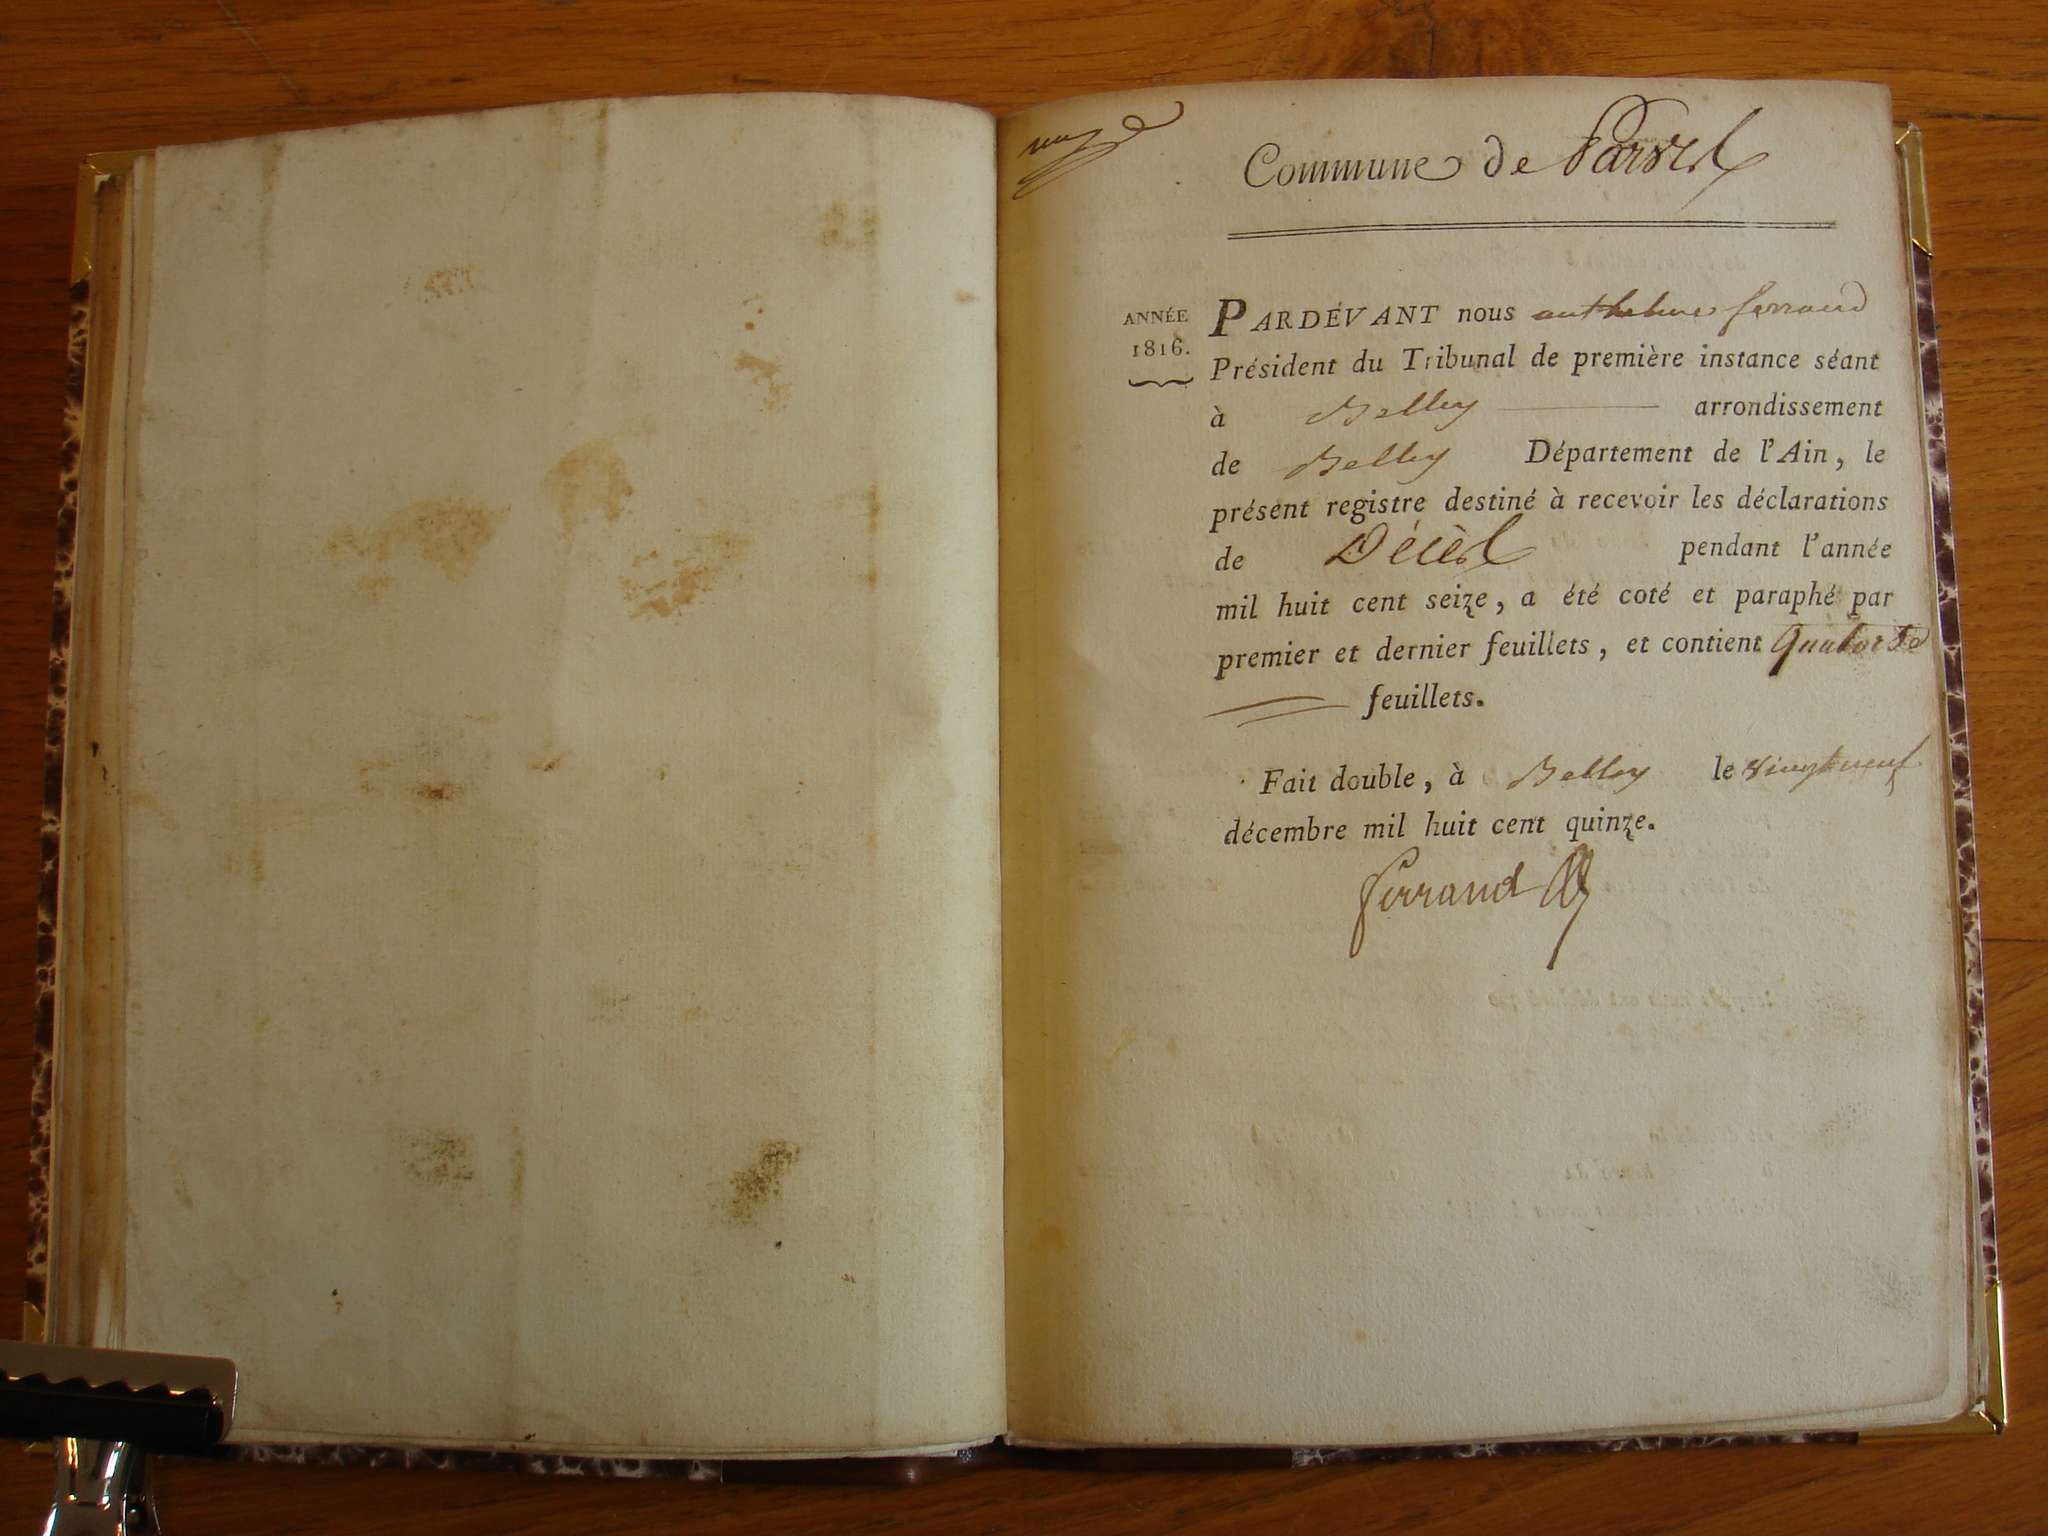 Commune de Parves
ANNÉE
1816.
PARDÉVANT nous anthelme ferrand
Président du Tribunal de première instance séant
à Belley arrondissement
de Belley Département de l'Ain, le
présent registre destiné à recevoir les déclarations
de Décès pendant l'année
mil huit cent seize, a été coté et paraphé par
premier et dernier feuillets, et contient quatorze
feuillets.
Fait double, à Belley le vingt neuf
décembre mil huit cent quinze.
Ferrand